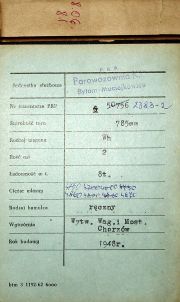 18
908
P.K.P.
Jednostka służbowa
Parowozownia Kl.
Bytom-Maciejkowice
Nr inwentarza PKP
50756 2383-2
Szerokość toru 785mm
Rodzaj wagonu Wh
Ilość osi 2
Ładowność w t. 8t.
Ciężar własny
Rodzaj hamulca ręczny
Wytwórnia Wytw. Wag.i Most.
Chorzów
Rok budowy 1948r.